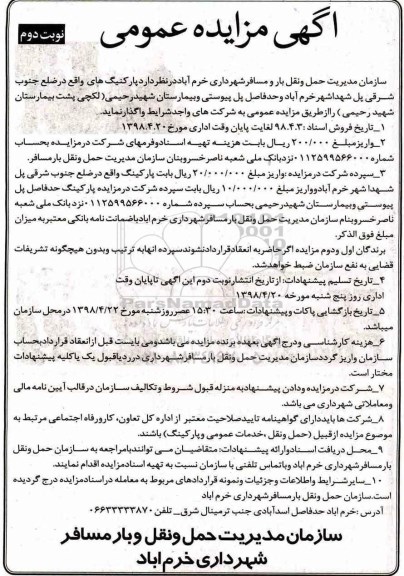 آگهی مزایده عمومی
نوبت دوم
سازمان مدیریت حمل ونقل بار و مسافرشهرداری خرم آباددرنظرداردپارکنیگ های واقع درضلع جنوب
شرقی پل شهداشهرخرم آباد وحدفاصل پل پیوستی وبیمارستان شهیدرحیمی(لکچی پشت بیمارستان
شهید رحیمی ) راازطریق مزایده عمومی به شرکت های واجدشرایط واگذارنماید.
۱_تاریخ فروش اسناد :۹۸.۴.۳ لغایت پایان وقت اداری مورخ ۱۳۹۸.۴.۲۰
۲_واریزمبلغ ۲۰۰/۰۰۰ ریال بابت هزینه تهیه اسنادوفرمهای شرکت درمزایده بحساب
شماره ۰۱۱۲۵۹۹۵۶۶۰۰۰ نزدبانک ملی شعبه ناصرخسروبنان سازمان مدیریت حمل ونقل بارمسافر.
۳_سپرده شرکت درمزایده :واریز مبلغ ۲۰/۰۰۰/۰۰۰ ریال بابت پارکینگ واقع درضلع جنوب شرقی پل
شهدا شهر خرم آبادوواریز مبلغ ۱۰/۰۰۰/۰۰۰ ریال بابت سپرده شرکت درمزایده پارکینگ حدفاصل پل
پیوستی وبیمارستان شهیدرحیمی بحساب سپرده شماره ۰۱۱۲۵۹۹۵۶۶۰۰۰ نزدبانک ملی شعبه
ناصرخسروبنام سازمان مدیریت حمل ونقل بارمسافرشهرداری خرم ابادیاضمانت نامه بانکی معتبربه میزان
مبلغ فوق الذکر.
برندگان اول ودوم مزایده اگرحاضربه انعقادقراردادنشوندسپرده انهابه ترتیب وبدون هیچگونه تشریفات
قضایی به نفع سازمان ضبط خواهدشد.
۴_تاریخ تسلیم پیشنهادات: ازتاریخ انتشارنوبت دوم این اگهی تاپایان وقت
اداری روز پنج شنبه مورخه ۱۳۹۸/۴/۲۰
۵_تاریخ بازگشایی پاکات وپیشنهادات :ساعت ۱۵:۳۰ عصرروزشنبه مورخ ۱۳۹۸/۴/۲۲ درمحل سازمان
میباشد.
۶_هزینه کارشناسی ودرج اگهی بعهده برنده مزایده می باشدومی بایست قبل ازانعقاد قراردادبحساب
سازمان واریز گرددسازمان مدیریت حمل ونقل بارمسافرشهرداری درردیاقبول یک یاکلیه پیشنهادات
مختار است.
۷_شرکت درمزایده ودادن پیشنهادبه منزله قبول شروط وتکالیف سازمان درقالب آیین نامه مالی
ومعاملاتی شهرداری می باشد.
۸_شرکت ها بایددارای گواهینامه تاییدصلاحیت معتبر از اداره کل تعاون، کارورفاه اجتماعی مرتبط به
موضوع مزایده ازقبیل (حمل ونقل ،خدمات عمومی وپارکینگ) باشند.
۹_محل دریافت اسنادوارائه پیشنهادات: متقاضیان می توانندبامراجعه به سازمان حمل ونقل
بارمسافرشهرداری خرم اباد ویاتماس تلفنی با سازمان نسبت به تهیه اسنادمزایده اقدام نمایند.
۱۰_سایرشرایط واطلاعات وجزئیات ونمونه قراردادهای مربوط به معامله دراسنادمزایده درج گردیده
است.سازمان حمل ونقل بارمسافرشهرداری خرم اباد
آدرس :خرم اباد حدفاصل اسدآبادی جنب ترمینال شرق_ تلفن ۰۶۶۳۳۳۳۳۸۷۰
سازمان مدیریت حمل ونقل و بار مسافر
شهرداری خرم اباد
ParsNamadData